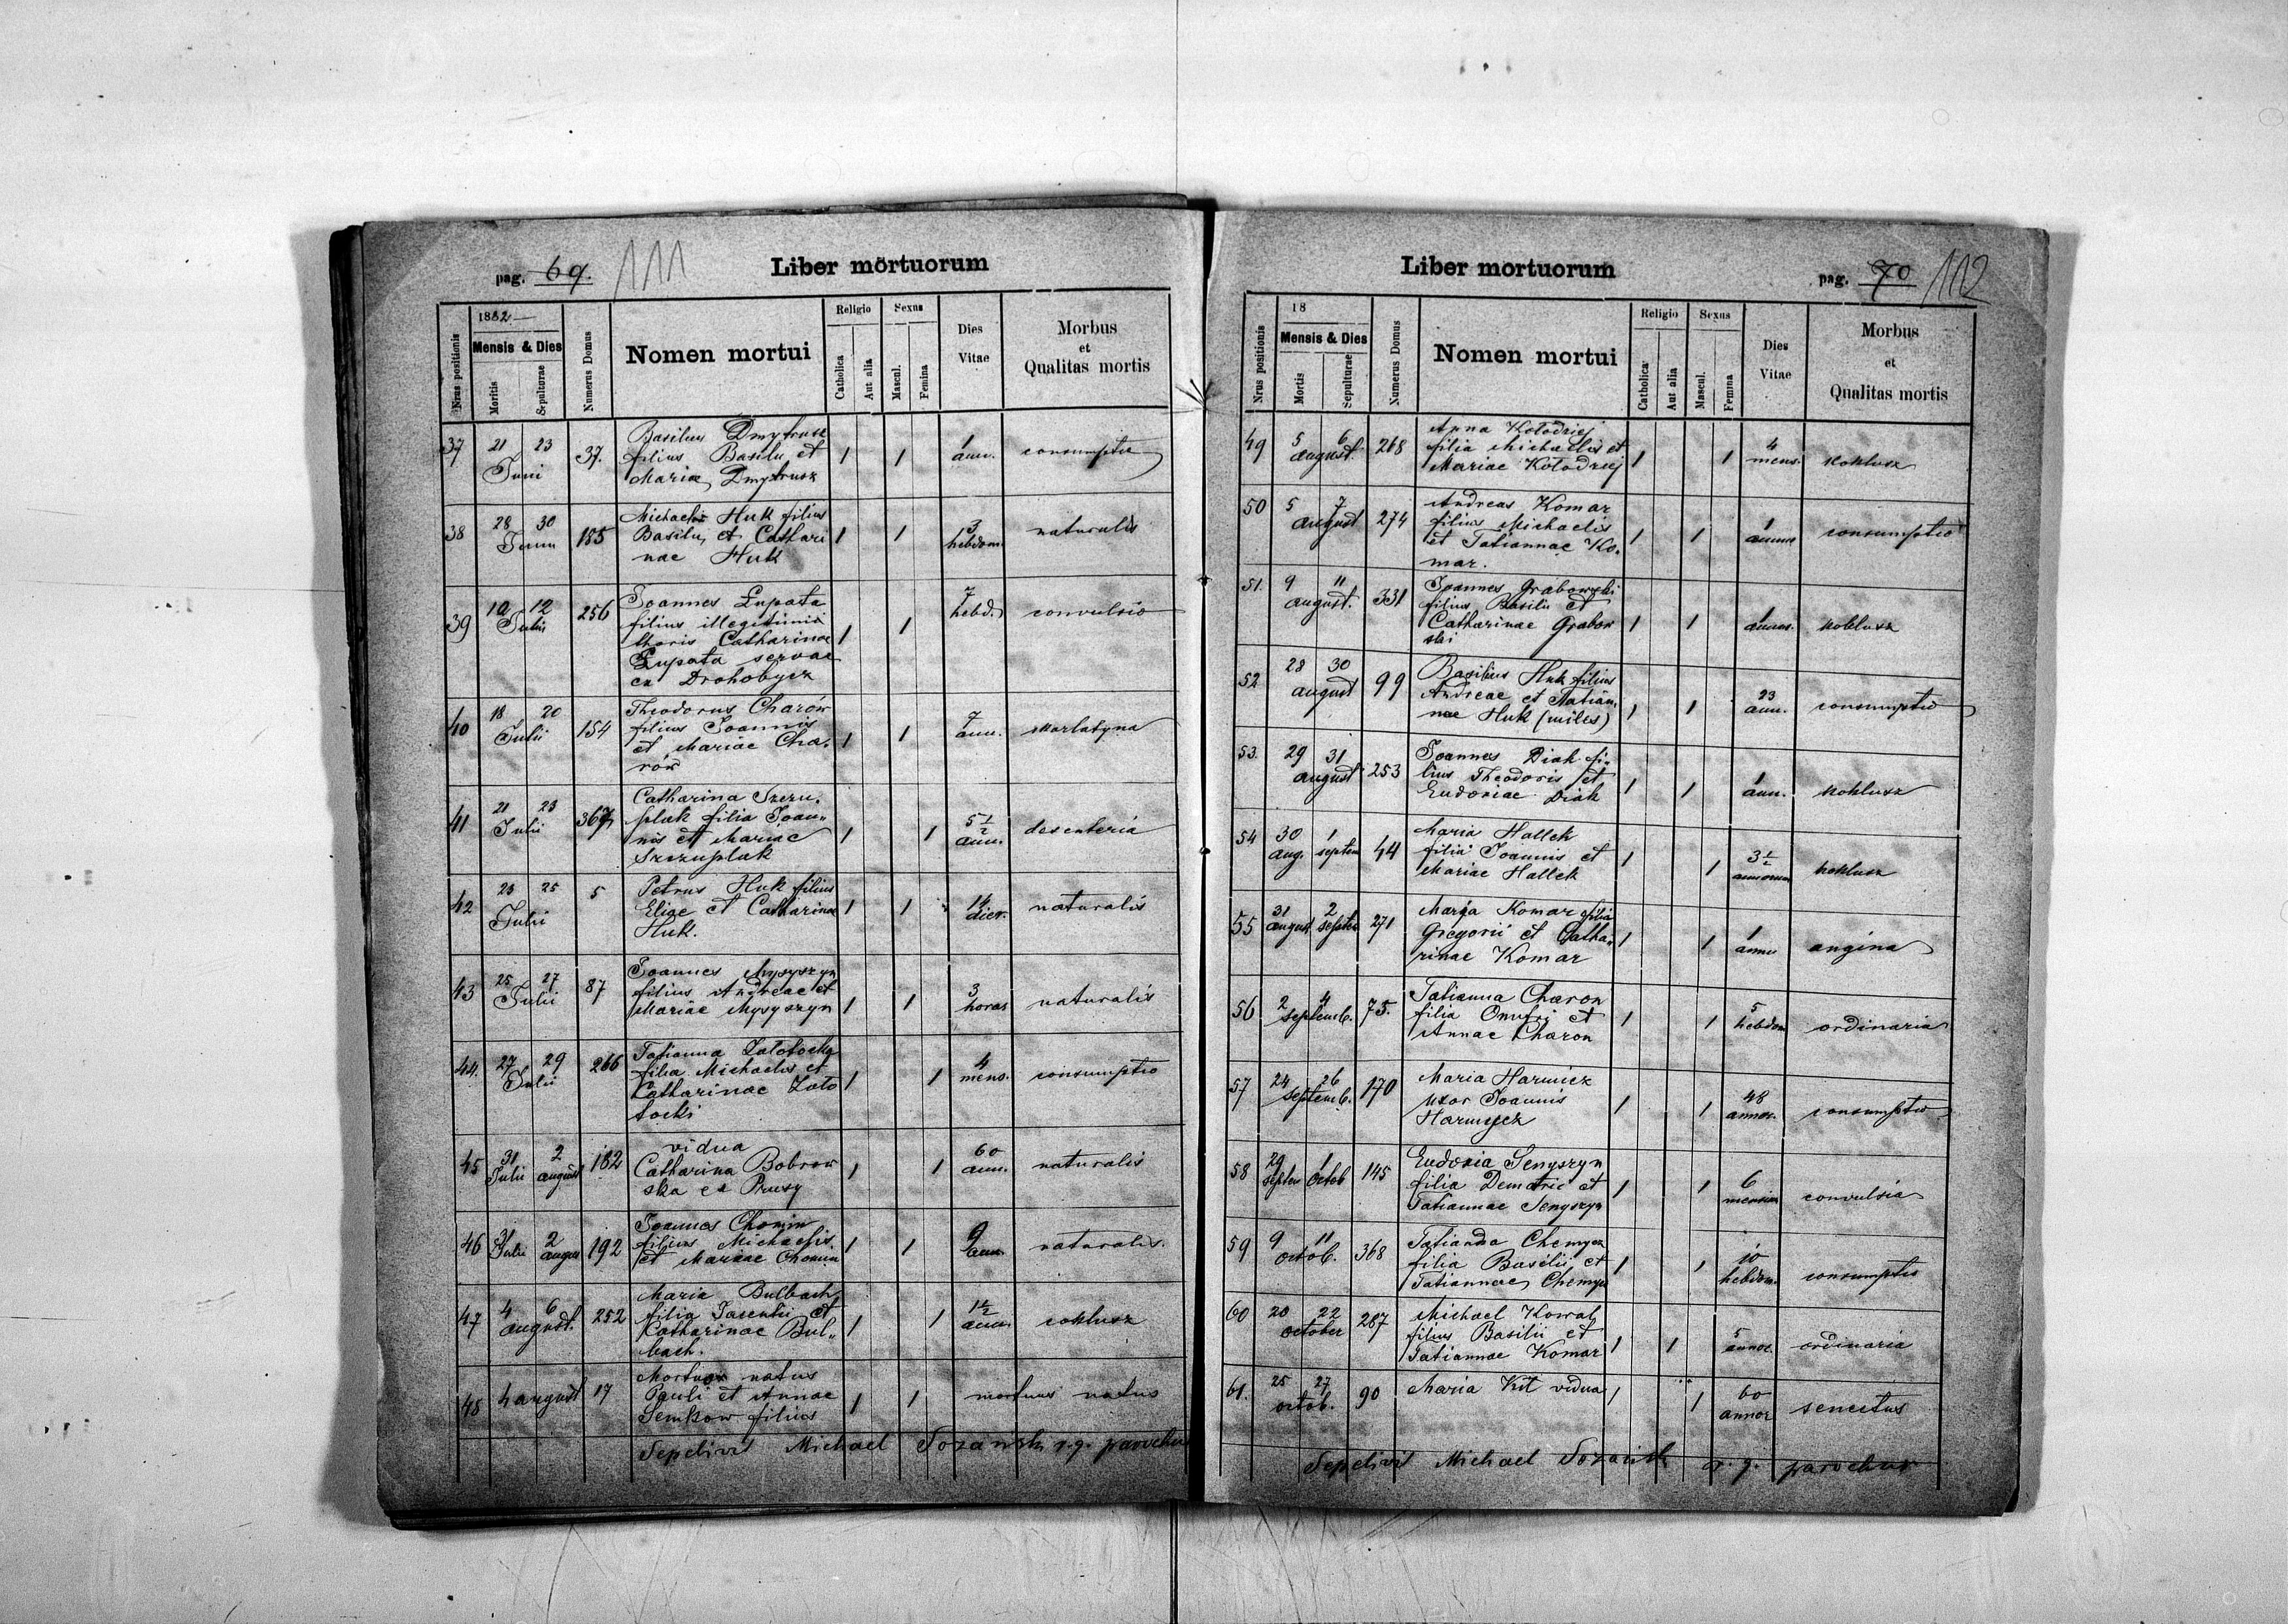 pag. 69. 111
Liber mortuorum
1882
Nrus positionis
Mensis & Dies
Mortis
Sepulturae
Numerus Domus
Nomen mortui
Religio
Catholica
Aut alia
Sexus
Mascul.
Femina
Dies
Vitae
Morbus
et
Qualitas mortis
37 21 23 Juni 37. 1 1 1 ann. consumptio
Basilius Dmytrusz
filius Basilii et
Mariae Dmytrusz
38 28 30 Junii 185 1 1 3 hebdom. naturalis
Michaelis Huk filius
Basilii et Cathari
nae Huk
39 10 12 Julii 256 1 1 7 hebd. convulsio
Joannes Łupata
filius illegitimi
thoris Catharinae
Łupata servae
ex Drohobycz
40 18 20 Julii 154 1 1 7 ann. skarlatyna
Theodorus Charów
filius Joannis
et Mariae Cha,
rów
41 21 23 Julii 367 1 1 5 1/2 ann. desenteria
Catharina Szczu,
plak filia Joan„
nis et Mariae
Szczuplak
42 23 25 Julii 5 1 1 14 dier. naturalis
Petrus Huk filius
Eliae et Catharinae
Huk.
43 25 27 Julii 87 1 1 3 horas naturalis
Joannes Mysyszyn
filius Andreae et
Mariae Mysyszyn
44. 27 29 Julii 266 1 1 4 mens. consumptio
Tatianna Zalotocka
filia Michaelis et
Catharinae Zalo
tocki
45 31 Julii 2 august 182 1 1 60 ann. naturalis
vidua
Catharina Bobrow
ska ex Prusy
46 31 Julii 2 august 192 1 1 9 ann. naturalis.
Joannes Chomin
filius Michaelis
et Mariae Chomin
47 4 6 august. 252 1 1 1 1/2 ann. koklusz
Maria Bulbach
filia Jacentii et
Catharinae Bul„
bach.
48 4 august 17 1 1 mortuus natus
Mortuus natus
Pauli et Annae
Semkow filius
Sepelivit Michael Sozański r. g. parochus
Liber mortuorum
pag. 70 112
18
Nrus positionis
Mensis & Dies
Mortis
Sepulturae
Numerus Domus
Nomen mortui
Religio
Catholica
Aut alia
Sexus
Mascul.
Femina
Dies
Vitae
Morbus
et
Qualitas mortis
49 5 6 august. 268 1 1 4 mens. koklusz
Anna Kołodziej
filia Michaelis et
Mariae Kołodziej
50 5 7 august 274 1 1 1 annus consumptio
Andreas Komar
filius Michaelis
et Tatiannae Ko,
mar.
51. 9 11 august. 331 1 1 1 annus. koklusz
Joannes Grabowski
filius Basilii et
Catharinae Grabow
ski
52 28 30 august 99 1 1 23 ann. consumptio
Basilius Huk filius
Andreae et Tatian,
nae Huk (miles)
53. 29 31 august 253 1 1 1 ann. koklusz
Joannes Diak fi,
lius Theodoris et
Eudoxiae Diak
54 30 aug. 1 septem 44 1 1 3 1/2 annorum koklusz
Maria Hallek
filia Joannis et
Mariae Hallek
55 31 august 2 septem 271 1 1 1 annus angina
Maria Komar filia
Gregorii et Catha,
rinae Komar
56 2 4 septemb. 75. 1 1 5 hebdom ordinaria
Tatianna Charon
filia Onufri et
Annae Charon
57 24 26 septemb. 170 1 1 48 annor. consumptio
Maria Harmicz
uxor Joannis
Harmycz
58 29 septem 1 octob 145 1 1 6 mensium convulsia
Eudoxia Senyszyn
filia Demetrii et
Tatiannae Senyszyn
59 9 11 octob. 368 1 1 10 hebdom. consumptio
Tatianna Chemycz
filia Basilii et
Tatiannae Chemycz
60 20 22 october 287 1 1 5 annor. ordinaria
Michael Kowal
filius Basilii et
Tatiannae Komar
61. 25 27 octob. 90 1 1 60 annor senectus
Maria Kit vidua
Sepelivit Michael Sozański r. g. parochus